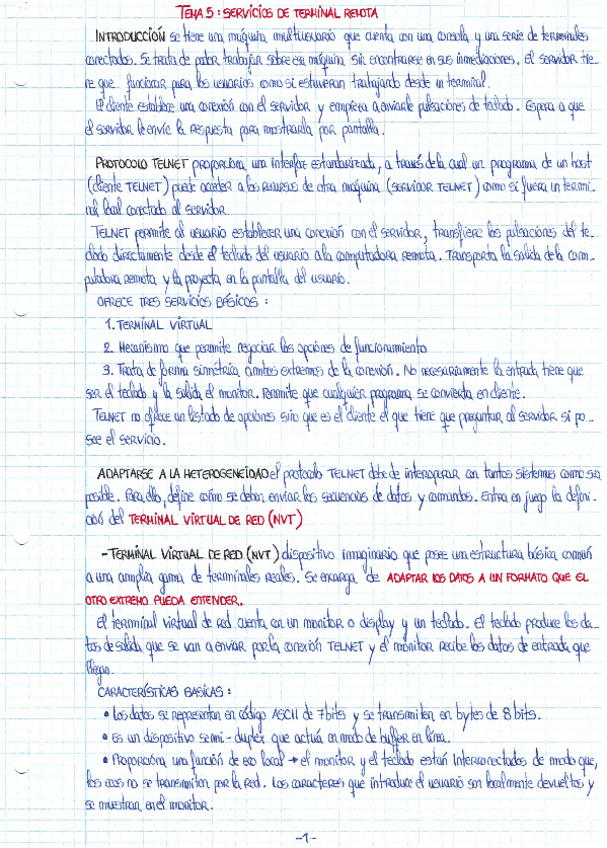 TEMA 5: SERVICIOS DE TERMINAL REMOTA
INTRODUCCIÓN se tiene una máquina multiusuario que cuenta con una consola y una serie de terminales
conectados. Se trata de poder trabajar sobre esa máquina sin encontrarse en sus inmediaciones. El servidor tie-
ne que funcionar para los usuarios como si estuvieran trabajando desde un terminal.
El cliente establece una conexión con el servidor y empieza a enviarle pulsaciones de teclado. Espera a que
el servidor le envíe la respuesta para mostrarla por pantalla.
PROTOCOLO TELNET proporciona una interfaz estandarizada, a través de la cual un programa de un host
(cliente TELNET) puede acceder a los recursos de otra máquina (SERVIDOR TELNET) como si fuera un termi-
nal local conectado al servidor.
TELNET permite al usuario establecer una conexión con el servidor, transfiere las pulsaciones del te-
clado directamente desde el teclado del usuario a la computadora remota. Transporta la salida de la com-
putadora remota y la proyecta en la pantalla del usuario.
OFRECE TRES SERVICIOS BÁSICOS:
1. TERMINAL VIRTUAL
2. Mecanismo que permite negociar las opciones de funcionamiento
3. Trata de forma simétrica ambos extremos de la conexión. No necesariamente la entrada tiene que
ser el teclado y la salida el monitor. Permite que cualquier programa se convierta en cliente.
TELNET no ofrece un listado de opciones sino que es el cliente el que tiene que preguntar al servidor si po-
see el servicio.
ADAPTARSE A LA HETEROGENEIDAD el protocolo TELNET debe de interoperar con tantos sistemas como sea
posible. Para ello, define cómo se deben enviar las secuencias de datos y comandos. Entra en juego la defini-
ción del TERMINAL VIRTUAL DE RED (NVT)
- TERMINAL VIRTUAL DE RED (NVT) dispositivo imaginario que posee una estructura básica común
a una amplia gama de terminales reales. Se encarga de ADAPTAR LOS DATOS A UN FORMATO QUE EL
OTRO EXTREMO PUEDA ENTENDER.
El terminal virtual de red cuenta con un monitor o display y un teclado. El teclado produce los da-
tos de salida que se van a enviar por la conexión TELNET y el monitor recibe los datos de entrada que
llegan.
CARACTERÍSTICAS BÁSICAS:
• Los datos se representan en código ASCII de 7 bits y se transmiten en bytes de 8 bits.
• Es un dispositivo semi-duplex que actúa en modo de buffer en línea.
• Proporciona una función de eco local → el monitor y el teclado están interconectados de modo que,
los ecos no se transmiten por la red. Los caracteres que introduce el usuario son localmente devueltos y
se muestran en el monitor.
-1-